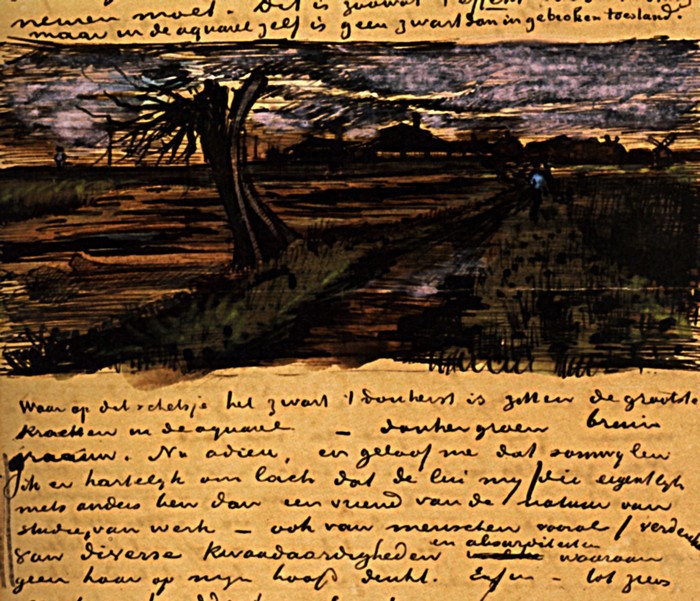 nemen moet. Dit is zoowat 't effekt
maar in de aquarel zelf is geen zwart dan in gebroken toestand.
Waar op dit schetsje het zwart 't donkerst is zitten de grootste
krachten in de aquarel — donkergroen bruin
graauw. Nu adieu, en geloof me dat somwijlen
ik er hartelyk om lach dat de lui my die eigentlyk
niets anders ben dan een vriend van de natuur van
studie, van werk — ook van menschen vooral verdenken
van diverse kwaadaardigheden en absurditeiten waaraan
geen haar op myn hoofd denkt. Enfin — tot ziens